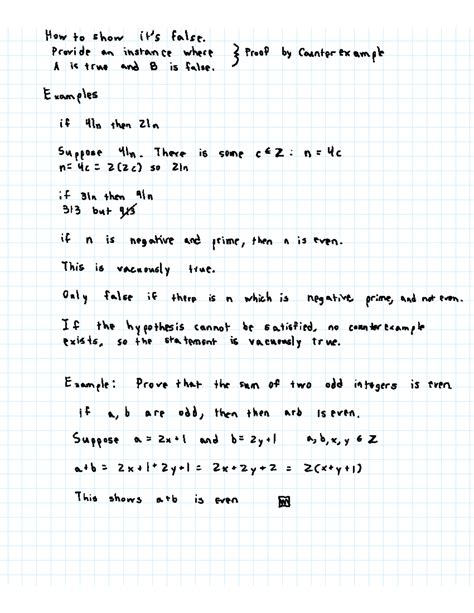 How to show it's false.
Provide an instance where } Proof by Counterexample
A is true and B is false.
Examples
if 4|n then 2|n
Suppose 4|n. There is some c ∈ Z : n = 4c
n = 4c = 2(2c) so 2|n
if 3|n then 9|n
3|3 but 9∤3
if n is negative and prime, then n is even.
This is vacuously true.
Only false if there is n which is negative, prime, and not even.
If the hypothesis cannot be satisfied, no counterexample
exists, so the statement is vacuously true.
Example: Prove that the sum of two odd integers is even
if a, b are odd, then then a+b is even.
Suppose a = 2x+1 and b = 2y+1 a, b, x, y ∈ Z
a+b = 2x+1+2y+1 = 2x+2y+2 = 2(x+y+1)
This shows a+b is even